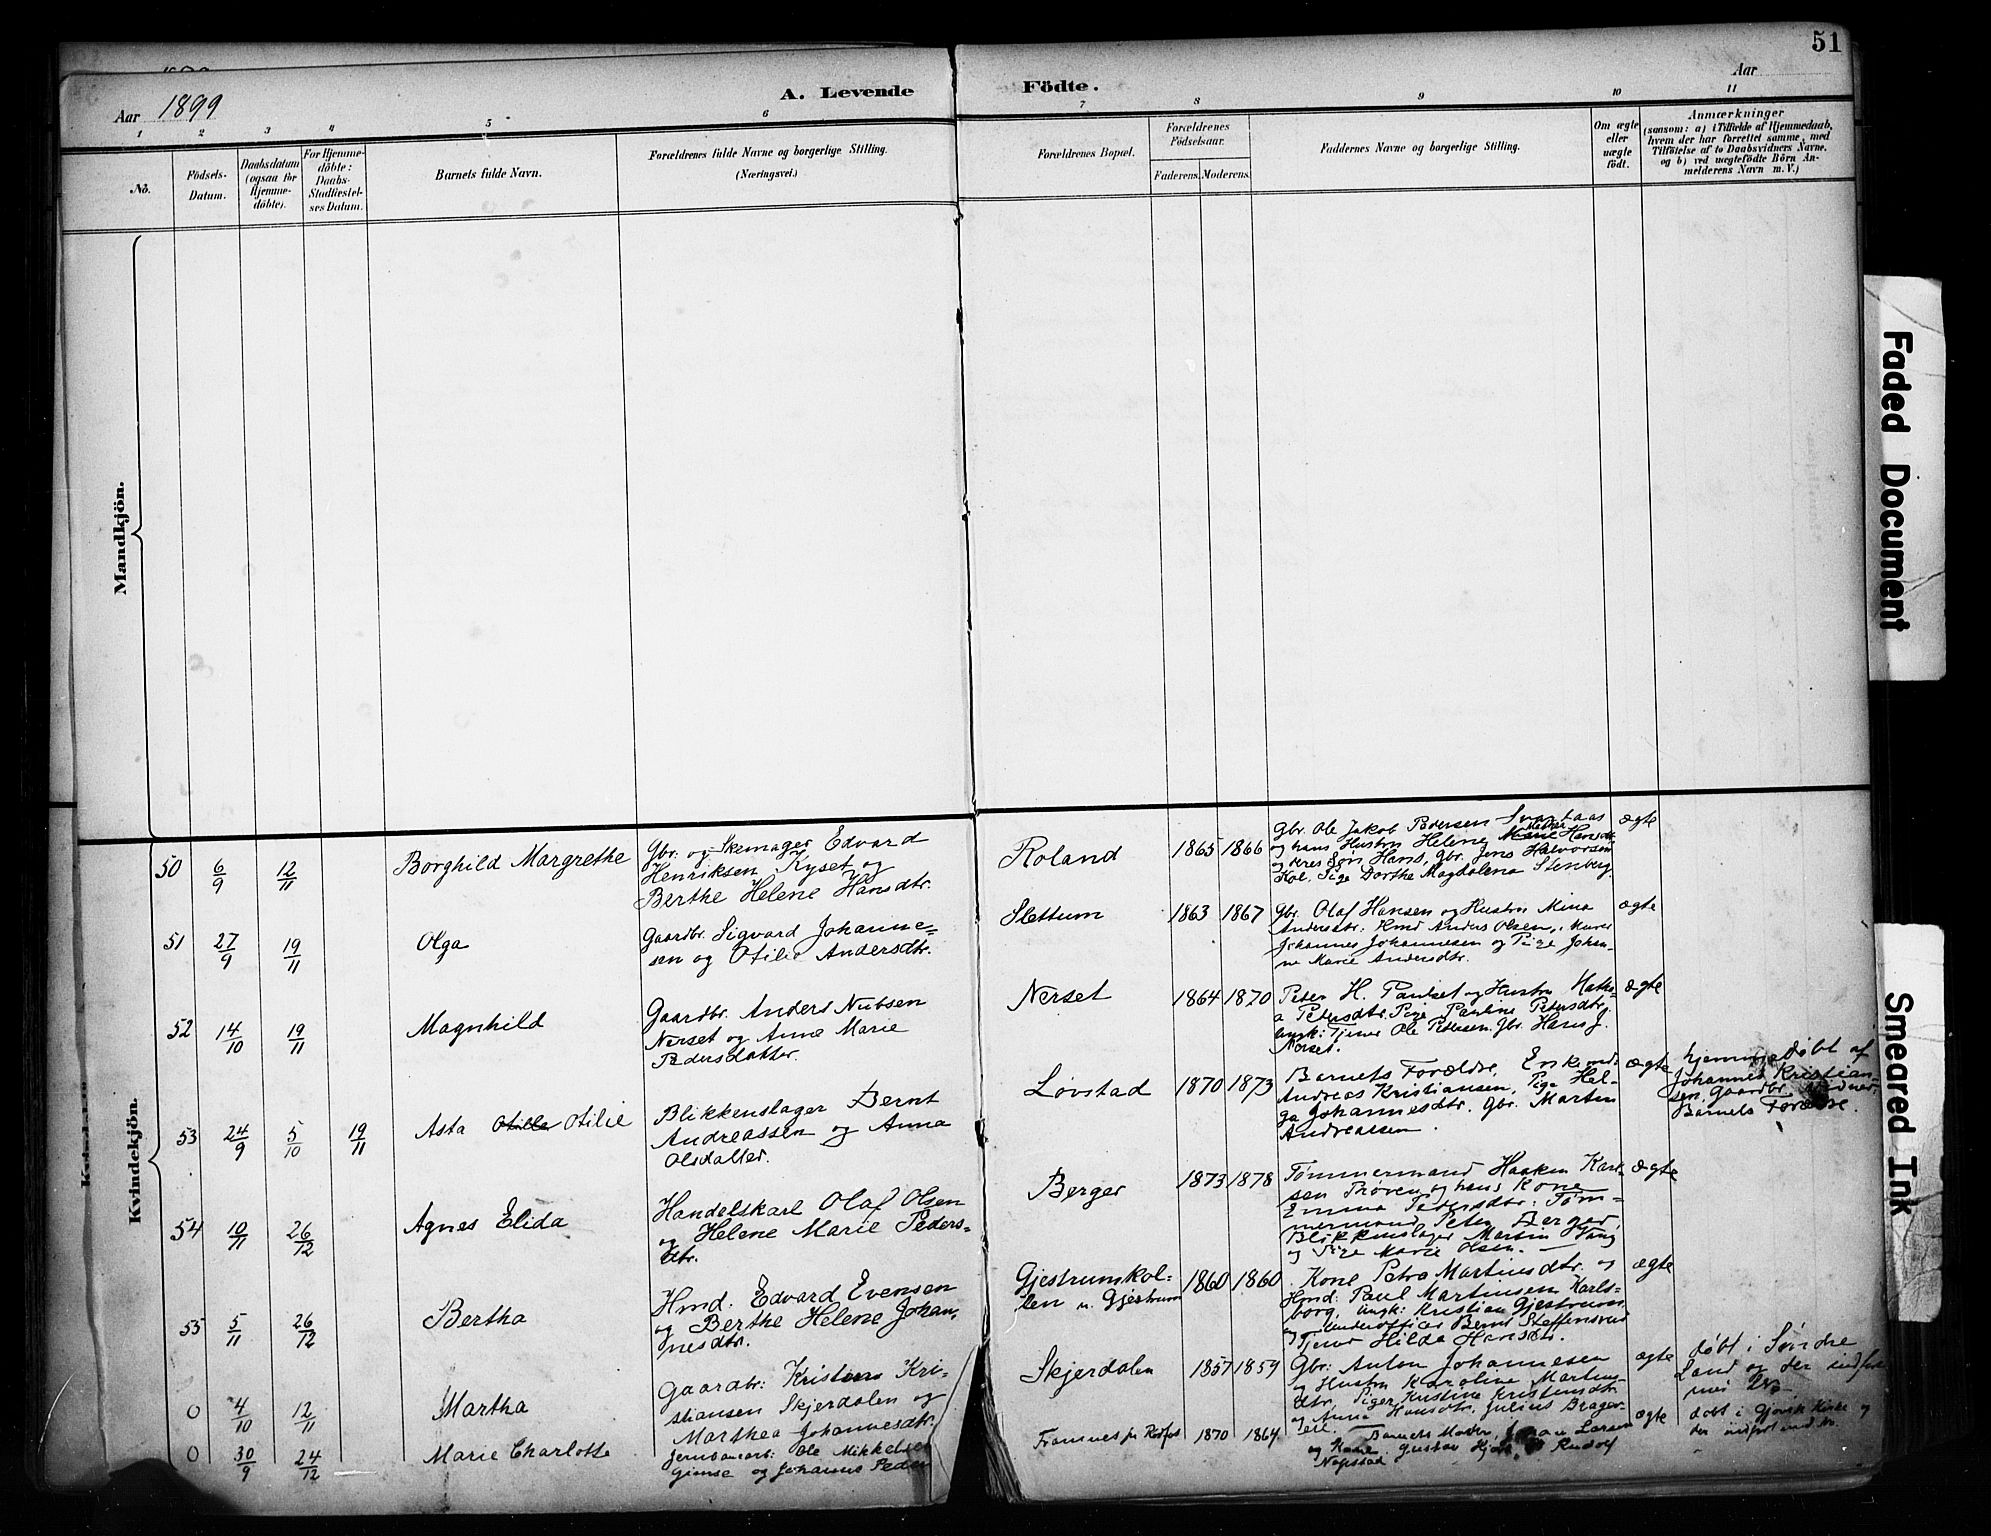 51
Aar 1899
A. Levende Födte.
Aar
1 2 3 4 5 6 7 8 9 10 11
No.
Födsels-
Datum.
Daabsdatum
(ogsaa for
Hjemme-
döbte).
For Hjemme-
döbte:
Daabs-
Stadfæstel-
ses Datum.
Barnets fulde Navn.
Forældrenes fulde Navne og borgerlige Stilling.
(Næringsvei.)
Forældrenes Bopæl.
Forældrenes
Födselsaar.
Faderens. Moderens.
Faddernes Navne og borgerlige Stilling.
Om ægte
eller
uægte
födt.
Anmærkninger
(saasom: a) i Tilfælde af Hjemmedaab,
hvem der har forrettet samme, med
Tilföielse af to Daabsvidners Navne.
og b) ved uegtefödte Börn An-
melderens Navn m. V.)
Mandkjön.
Kvindekjön.
50 6/9 12/11 Borghild Margrethe
Gbr. og Skomager Edvard
Henriksen Kyset og
Berthe Helene Hansdtr.
Roland 1865 1866
Gbr. Ole Jakob Pedersen Svartaas
og hans Hustru Helene Hansdt.
og deres Søn Hans, Gbr. Jens Halvorsen
Kol. Pige Dorthe Magdalena Stenberg.
ægte
51 27/9 19/11 Olga
Gaardbr. Sigvard Johanne-
sen og Otilie Andersdtr.
Slettum 1863 1867
Gbr. Olaf Hansen og Hustru Mina
Andersdtr. Hmd Anders Olsen, Murer
Johannes Johannesen og Pige Johan-
ne Marie Andersdtr.
ægte
52 14/10 19/11 Magnhild
Gaardbr. Anders Nubsen
Nerset og Anne Marie
Pedersdatter.
Nerset 1864 1870
Peter H. Paulset og Hustru
a Petersdtr. Pige Pauline Petersdtr.
Ungk: Tjener Ole Petersen. Gbr. Hans J.
Nerset.
ægte
53 24/9 5/10 19/11 Asta Otilie Otilie
Blikkenslager Bernt
Andreassen og Anna
Olsdatter.
Løvstad 1870 1873
Barnets Forældre, Enkemd.
Andreas Kristiansen, Pige Hel-
ga Johannesdtr. Gbr. Martin
Andreassen.
ægte
hjemmedøbt af
Johannes Kristian-
sen. Gaardbr. Vidner
Barnets Forældre.
54 10/11 26/12 Agnes Elida
Handelskarl Olaf Olsen
og Helene Marie Peders-
dtr.
Berger 1873 1878
Tømmermand Haaken Karl-
sen Prøven og hans Kone
Emma Pedersdtr. Tøm-
mermand Peter Berger,
Blikkenslager Martin Vang
og Pige Marie Olsen.
ægte
55 5/11 26/12 Bertha
Hmd. Edvard Evensen
og Berthe Helene Johan-
nesdtr.
Gjestrumskol-
len u. Gjestrum 1860 1860
Kone Petra Martinsdtr. og
Hmd: Paul Martinsen Karls-
borg, Ungk: Kristian Gjestrum
og Underofficer Bernt Steffensrud
Tjener Hilda Hansdtr.
ægte
0 4/10 12/11 Martha
Gaardbr: Kristian Kri-
stiansen Skjerdalen og
Marthea Johannesdtr.
Skjerdalen 1857 1859
Gbr: Anton Johannesen
og Hustru Karoline Martins-
dtr, Piger Kristine Kristensdtr.
og Anna Hansdtr. Julius Brager-
eie.
ægte
døbt i Søndre
Land og der indført
med No
0 30/9 24/12 Marie Charlotte
Jernbanearb: Ole Mikkelsen
Gimse og Johanne Peder
Framnes pr Raufos 1870 1864
Barnets Moder, Johan Larsen
og Kone. Gustav Rudolf
Nøpstad
ægte
døbt i Gjøvik Kirke og
der indført med No.
Faded Document
Smeared Ink